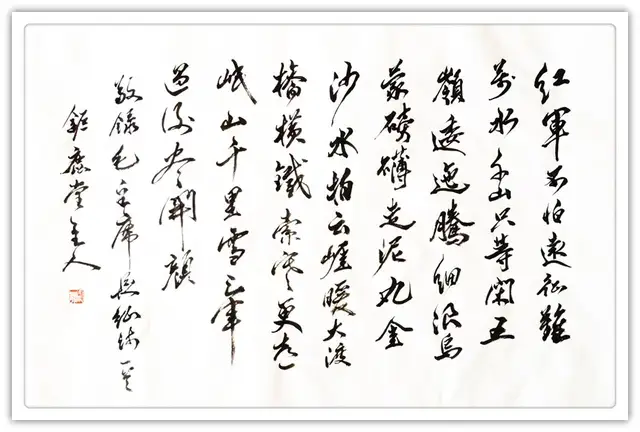 红軍不怕遠征難
萬水千山只等閑五
嶺逶迤騰細浪烏
蒙磅礴走泥丸金
沙水拍云崖暖大渡
橋横鐵索寒更喜
岷山千里雪三軍
過後尽開顔
敬録毛主席长征诗一首
鉅鹿堂主人